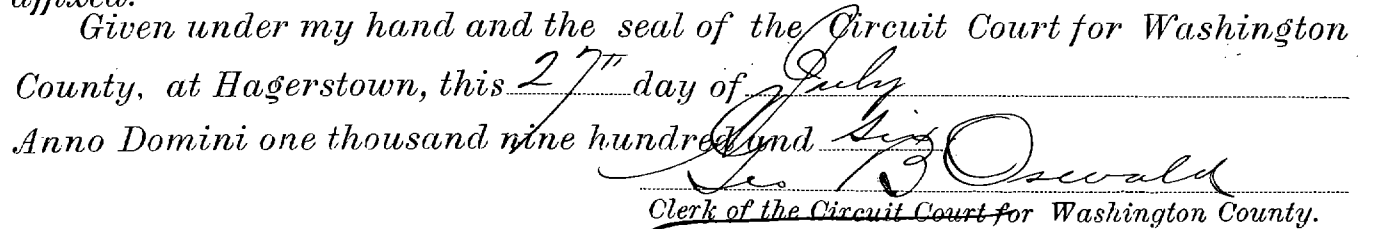 affixed.
Given under my hand and the seal of the Circuit Court for Washington
County, at Hagerstown, this 27th day of July
Anno Domini one thousand nine hundred and six
Geo B Oswald
Clerk of the Circuit Court for Washington County.